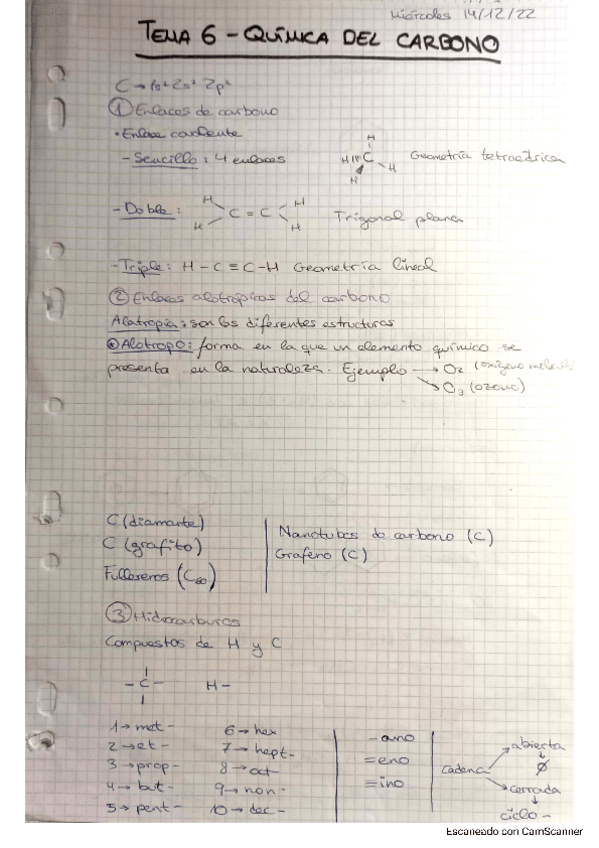 Miércoles 14/12/22
TEMA 6 - QUÍMICA DEL CARBONO
C → 1s² 2s² 2p²
① Enlaces de carbono
• Enlace covalente
- Sencillo: 4 enlaces
H
H C H
H
Geometría tetraédrica
- Doble:
H H
C = C
H H
Trigonal plana
- Triple: H - C ≡ C - H Geometría lineal
② Enlaces alotrópicos del carbono
Alotropía: son las diferentes estructuras
Alótropo: forma en la que un elemento químico se
presenta en la naturaleza. Ejemplo → O₂ (oxígeno
→ O₃ (ozono)
C (diamante)
C (grafito)
Fullereros (C₆₀)
Nanotubos de carbono (C)
Grafeno (C)
③ Hidrocarburos
Compuestos de H y C
- C - H -
1 → met -
2 → et -
3 → prop -
4 → but -
5 → pent -
6 → hex
7 → hept -
8 → oct -
9 → non -
10 → dec -
- ano
= eno
≡ ino
cadena
abierta
↓
∅
cerrada
↓
ciclo -
Escaneado con CamScanner